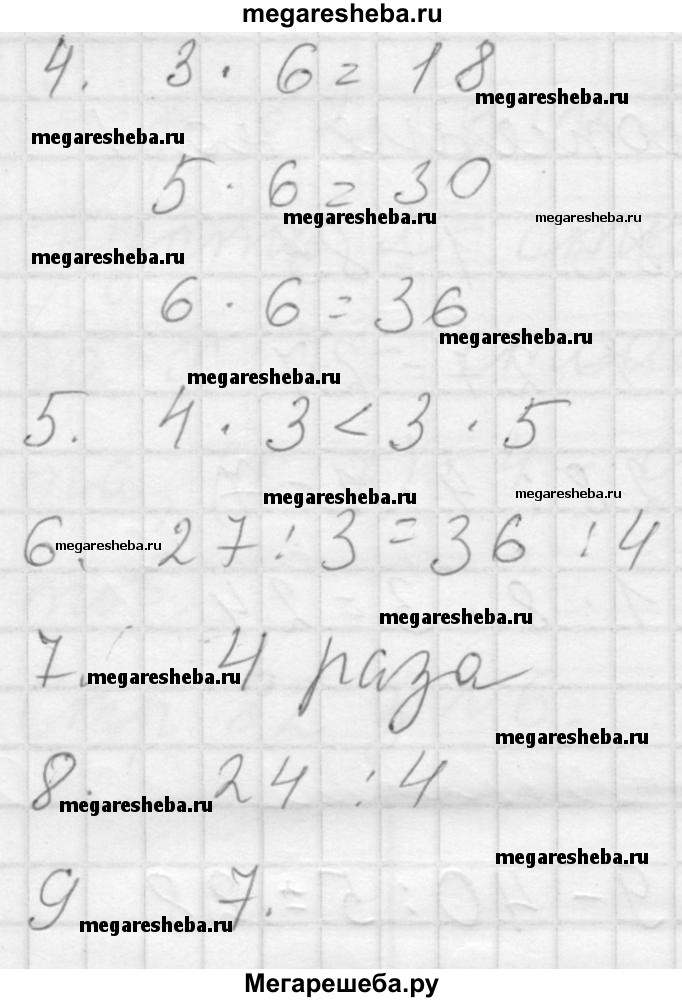 megaresheba.ru
4. 3 · 6 = 18
megaresheba.ru
megaresheba.ru
5 · 6 = 30
megaresheba.ru megaresheba.ru
megaresheba.ru
6 · 6 = 36
megaresheba.ru
megaresheba.ru
5. 4 · 3 < 3 · 5
megaresheba.ru megaresheba.ru
6. megaresheba.ru 27 : 3 = 36 : 4
megaresheba.ru
7. 4 раза
megaresheba.ru
megaresheba.ru
8. 24 : 4
megaresheba.ru
megaresheba.ru
9 7.
megaresheba.ru
Мегарешеба.ру